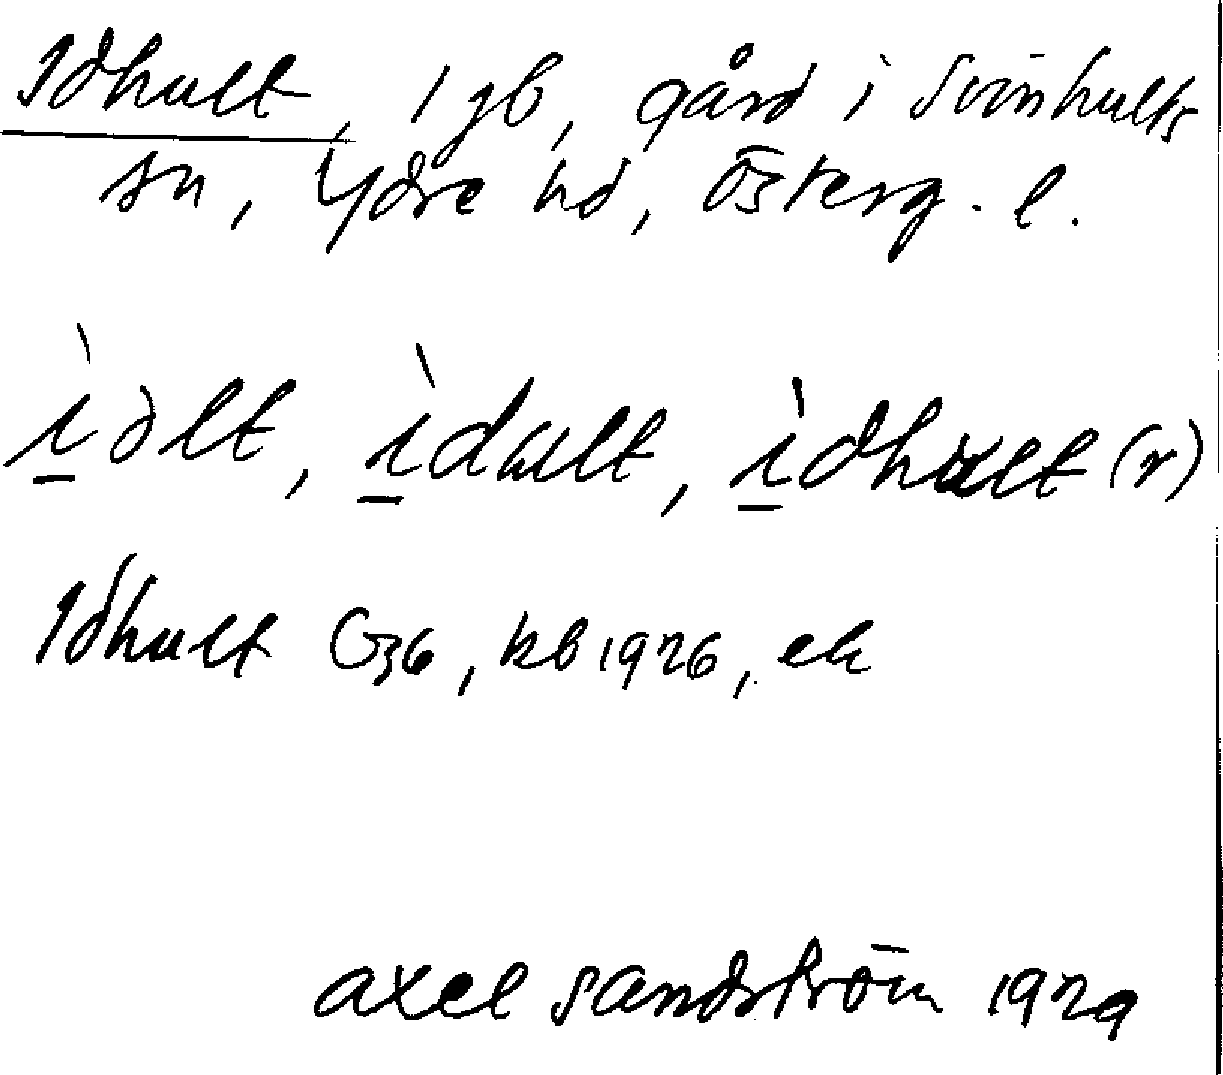 Idhult, 1 gb, gård i Svinhults
sn, Ydre hd, Österg. l.
ìdlt, ìdult, ìdhult (r)
Idhult G36, kb 1926, ek
Axel Sandström 1929